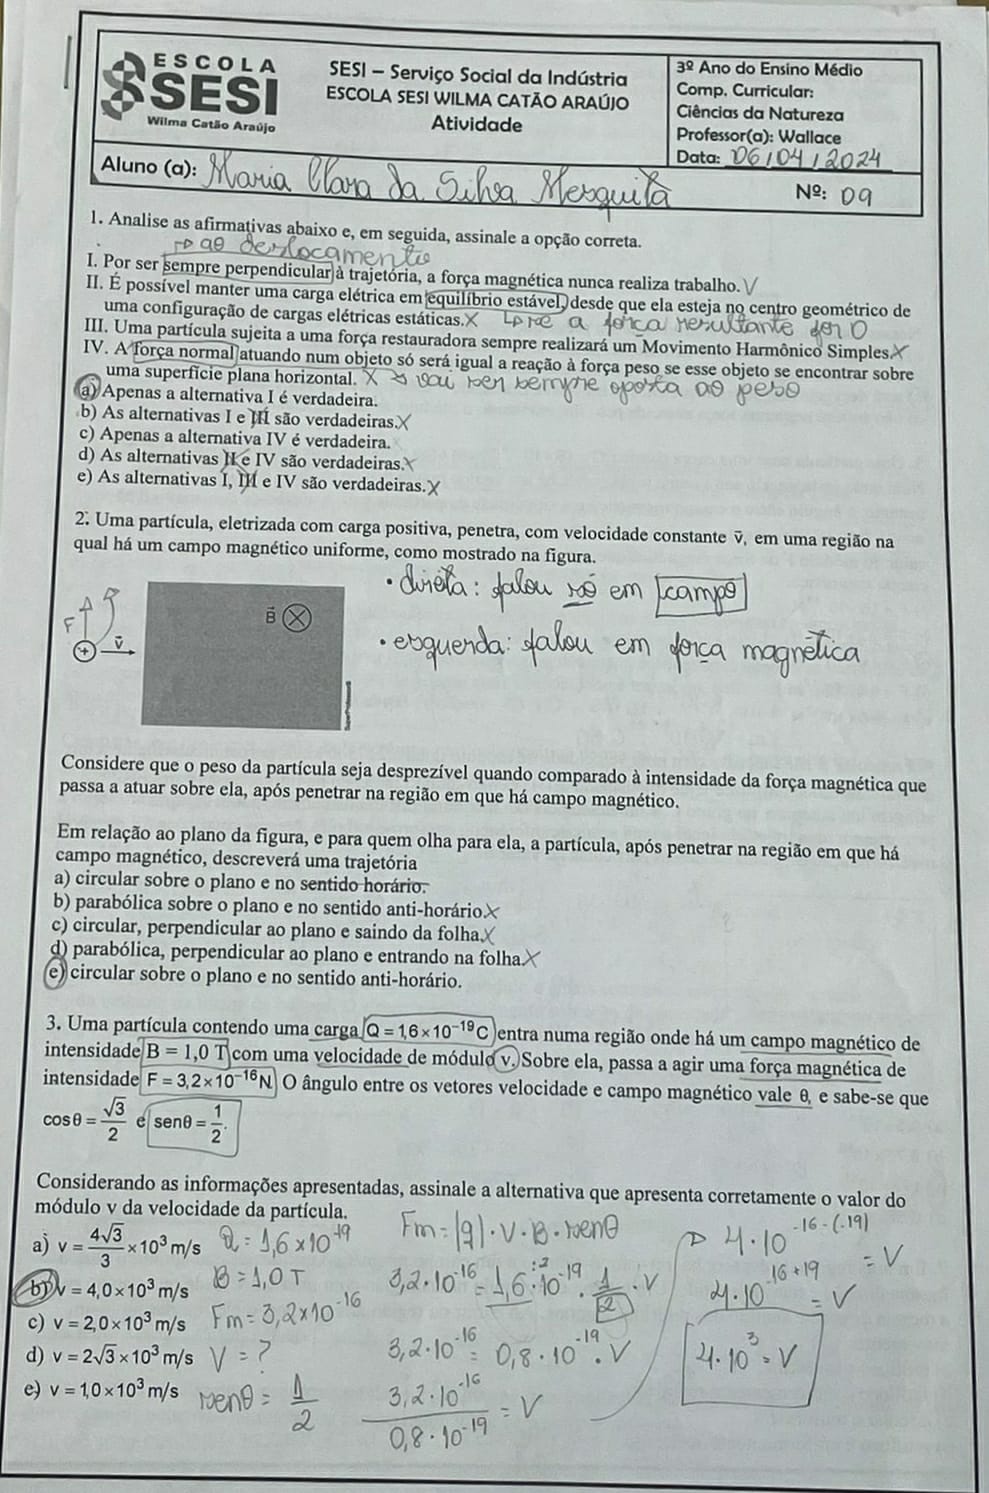 ESCOLA
SESI
Wilma Catão Araújo
SESI - Serviço Social da Indústria
ESCOLA SESI WILMA CATÃO ARAÚJO
Atividade
3º Ano do Ensino Médio
Comp. Curricular:
Ciências da Natureza
Professor(a): Wallace
Data: 06/04/2024
Aluno (a): Maria Clara da Silva Mesquita
Nº: 09
1. Analise as afirmativas abaixo e, em seguida, assinale a opção correta.
→ ao deslocamento
I. Por ser sempre perpendicular à trajetória, a força magnética nunca realiza trabalho. V
II. É possível manter uma carga elétrica em equilíbrio estável, desde que ela esteja no centro geométrico de
uma configuração de cargas elétricas estáticas. X → se a força resultante for 0
III. Uma partícula sujeita a uma força restauradora sempre realizará um Movimento Harmônico Simples. X
IV. A força normal atuando num objeto só será igual a reação à força peso se esse objeto se encontrar sobre
uma superfície plana horizontal. X → vai ser sempre oposta ao peso
a) Apenas a alternativa I é verdadeira.
b) As alternativas I e III são verdadeiras. X
c) Apenas a alternativa IV é verdadeira.
d) As alternativas II e IV são verdadeiras. X
e) As alternativas I, III e IV são verdadeiras. X
2. Uma partícula, eletrizada com carga positiva, penetra, com velocidade constante v⃗, em uma região na
qual há um campo magnético uniforme, como mostrado na figura.
• direita: falou só em campo
• esquerda: falou em força magnética
F
+
v⃗
B⃗
Considere que o peso da partícula seja desprezível quando comparado à intensidade da força magnética que
passa a atuar sobre ela, após penetrar na região em que há campo magnético.
Em relação ao plano da figura, e para quem olha para ela, a partícula, após penetrar na região em que há
campo magnético, descreverá uma trajetória
a) circular sobre o plano e no sentido horário.
b) parabólica sobre o plano e no sentido anti-horário. X
c) circular, perpendicular ao plano e saindo da folha. X
d) parabólica, perpendicular ao plano e entrando na folha. X
e) circular sobre o plano e no sentido anti-horário.
3. Uma partícula contendo uma carga Q = 1,6 × 10⁻¹⁹ C entra numa região onde há um campo magnético de
intensidade B = 1,0 T com uma velocidade de módulo v. Sobre ela, passa a agir uma força magnética de
intensidade F = 3,2 × 10⁻¹⁶ N. O ângulo entre os vetores velocidade e campo magnético vale θ, e sabe-se que
cosθ = √3/2 e senθ = 1/2.
Considerando as informações apresentadas, assinale a alternativa que apresenta corretamente o valor do
módulo v da velocidade da partícula.
a) v = 4√3/3 × 10³ m/s
b) v = 4,0 × 10³ m/s
c) v = 2,0 × 10³ m/s
d) v = 2√3 × 10³ m/s
e) v = 1,0 × 10³ m/s
Q = 1,6 × 10⁻¹⁹
B = 1,0 T
Fm = 3,2 × 10⁻¹⁶
V = ?
senθ = 1/2
Fm = |q| · V · B · senθ
:2
3,2 · 10⁻¹⁶ = 1,6 · 10⁻¹⁹ · 1/2 · V
3,2 · 10⁻¹⁶ = 0,8 · 10⁻¹⁹ · V
3,2 · 10⁻¹⁶ / 0,8 · 10⁻¹⁹ = V
→ 4 · 10⁻¹⁶⁻⁽⁻¹⁹⁾ = V
4 · 10⁻¹⁶⁺¹⁹ = V
4 · 10³ = V